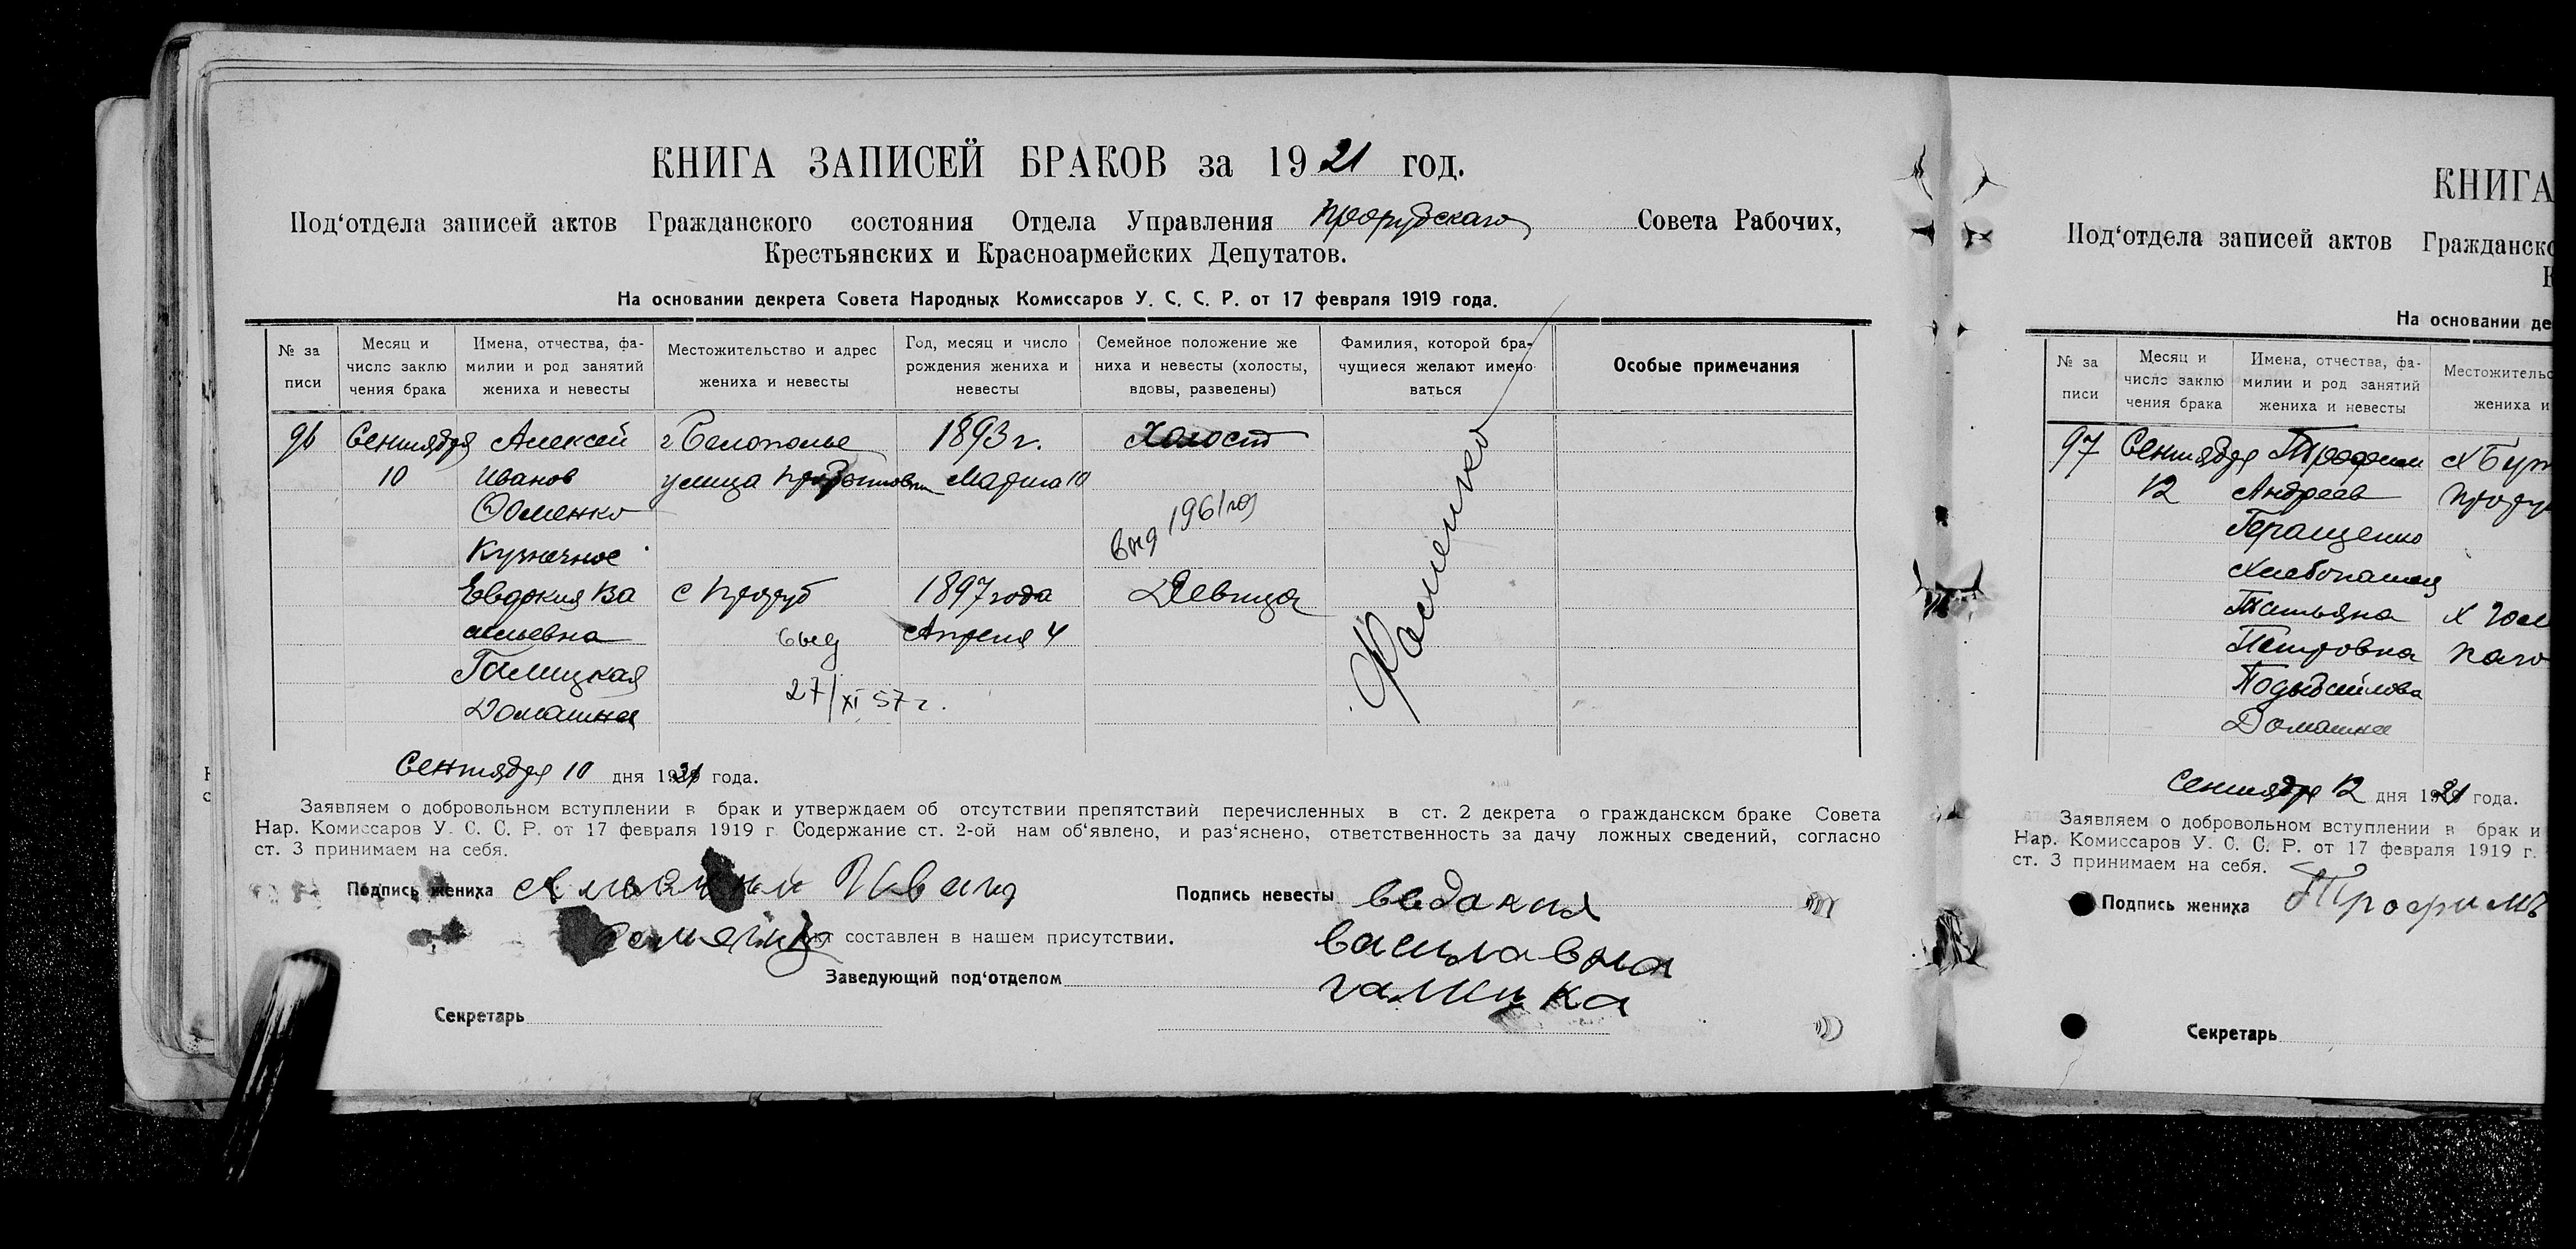 КНИГА ЗАПИСЕЙ БРАКОВ за 1921 год.
Под‘отдела записей актов Гражданского состояния Отдела Управления Прорубскаго Совета Рабочих,
Крестьянских и Красноармейских Депутатов.
На основании декрета Совета Народных Комиссаров У. С. С. Р. от 17 февраля 1919 года.
№ за писи
Месяц и число заклю чения брака
Имена, отчества, фа- милии и род занятий жениха и невесты
Местожительство и адрес жениха и невесты
Год, месяц и число рождения жениха и невесты
Семейное положение же ниха и невесты (холосты, вдовы, разведены)
Фамилия, которой бра- чущиеся желают имено- ваться
Особые примечания
96 Сентября Алексей г Белополье 1893 г. Холост
10 Иванов улица Марта 10
Фоменко
выд 1961 год
Кузнечное
Евдокия Ва с Проруб 1897 года Девица
сильевна выд Апреля 4
Галицкая
27/XI 57 г.
Домашнее
Фоменко
Сентября 10 дня 1921 года.
Заявляем о добровольном вступлении в брак и утверждаем об отсутствии препятствий перечисленных в ст. 2 декрета о гражданском браке Совета
Нар. Комиссаров У. С. С. Р. от 17 февраля 1919 г. Содержание ст. 2-ой нам об‘явлено, и раз‘яснено, ответственность за дачу ложных сведений, согласно
ст. 3 принимаем на себя.
Подпись жениха
Подпись невесты
василавна
галицка
составлен в нашем присутствии.
Заведующий под‘отделом
Секретарь
КНИГА
Под‘отдела записей актов Гражданско
К
На основании де
№ за писи
Месяц и число заклю чения брака
Имена, отчества, фа- милии и род занятий жениха и невесты
Местожительс жениха и
97 Сентября Трофим
12 Андреев
Геращенко
Хлебопашец
Татьяна
Петровна
Домашнее
Сентября 12 дня 1921 года.
Заявляем о добровольном вступлении в брак и
Нар. Комиссаров У. С. С. Р. от 17 февраля 1919 г.
ст. 3 принимаем на себя.
Подпись жениха Трофимъ
Секретарь